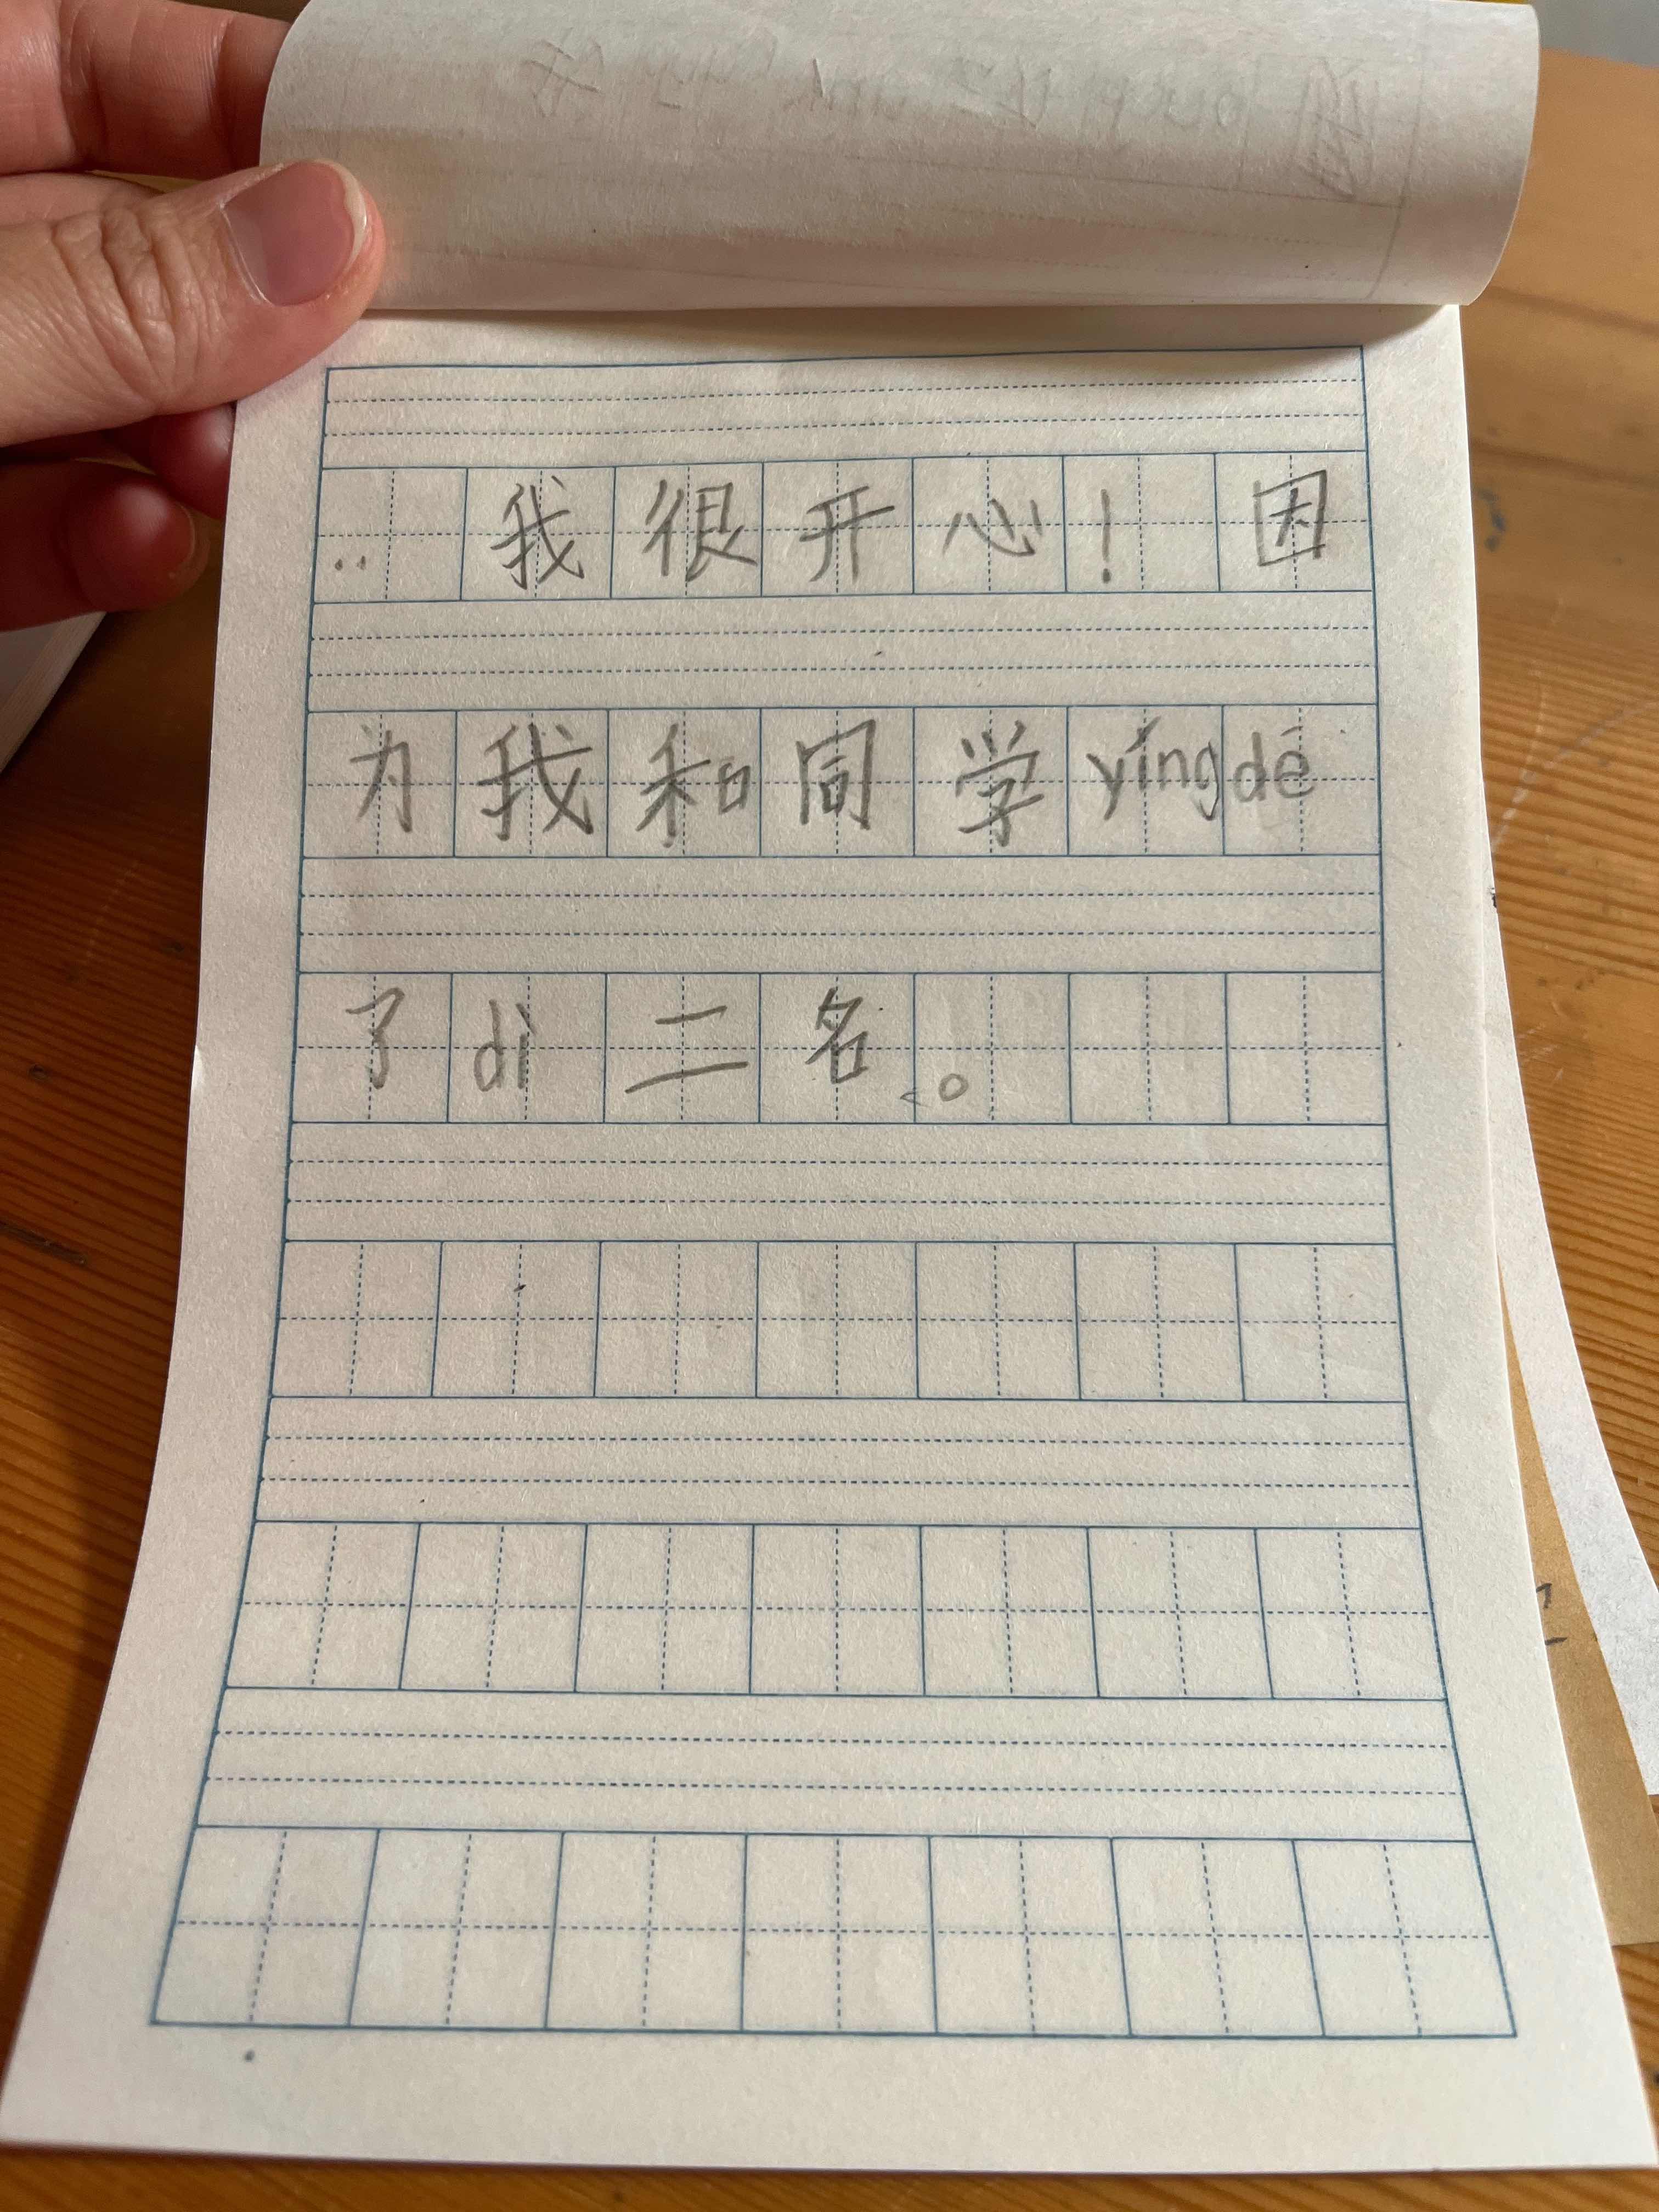 ..我很开心！因
为我和同学yíngdé
了dì二名。